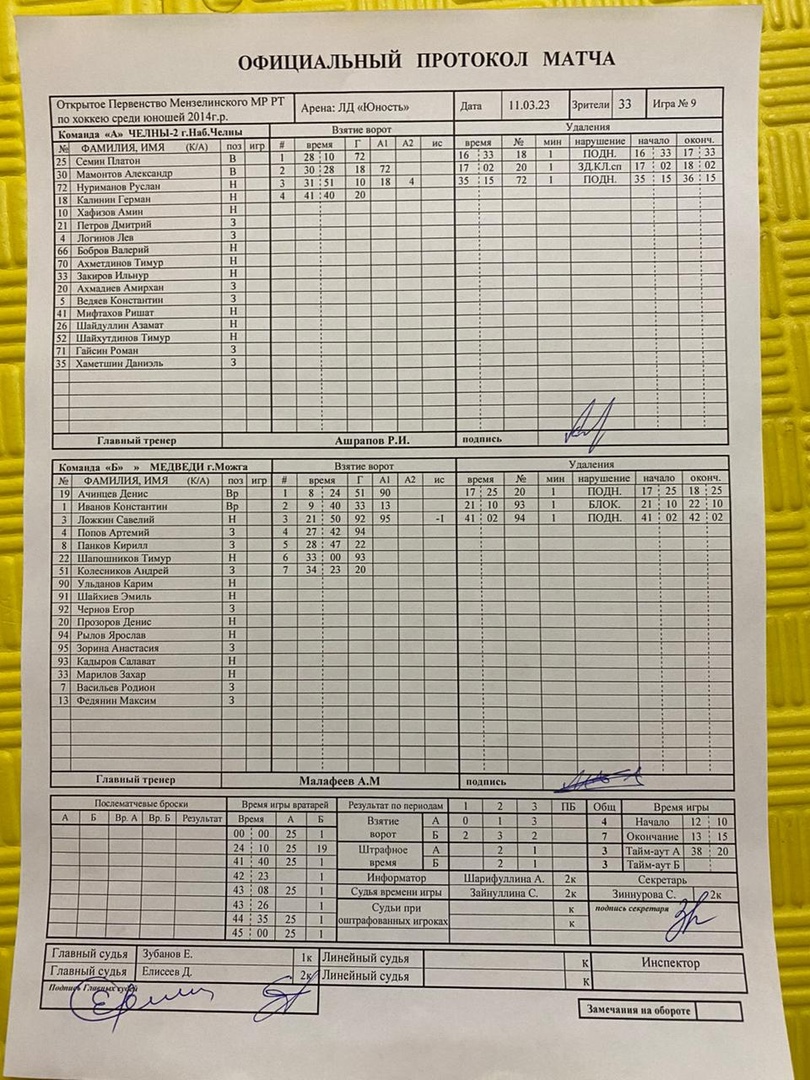 ОФИЦИАЛЬНЫЙ ПРОТОКОЛ МАТЧА
Открытое Первенство Мензелинского МР РТ по хоккею среди юношей 2014г.р. Арена: ЛД «Юность» Дата 11.03.23 Зрители 33 Игра № 9
Команда «А» ЧЕЛНЫ-2 г.Наб.Челны Взятие ворот Удаления
№ ФАМИЛИЯ, ИМЯ (К/А) поз игр # время Г А1 А2 ис время № мин нарушение начало оконч.
25 Семин Платон В 1 28 : 10 72 16 33 18 1 ПОДН. 16 33 17 33
30 Мамонтов Александр В 2 30 : 28 18 72 17 02 20 1 ЗД.КЛ.сп 17 02 18 02
72 Нуриманов Руслан Н 3 31 : 51 10 18 4 35 15 72 1 ПОДН. 35 15 36 15
18 Калинин Герман Н 4 41 : 40 20
10 Хафизов Амин Н
21 Петров Дмитрий З
4 Логинов Лев З
66 Бобров Валерий Н
70 Ахметдинов Тимур Н
33 Закиров Ильнур Н
20 Ахмадиев Амирхан З
5 Ведяев Константин З
41 Мифтахов Ришат Н
26 Шайдуллин Азамат Н
52 Шайхутдинов Тимур Н
71 Гайсин Роман З
35 Хаметшин Даниэль З
Главный тренер Ашрапов Р.И. подпись
Команда «Б» » МЕДВЕДИ г.Можга Взятие ворот Удаления
№ ФАМИЛИЯ, ИМЯ (К/А) поз игр # время Г А1 А2 ис время № мин нарушение начало оконч.
19 Ачинцев Денис Вр 1 8 : 24 51 90 17 25 20 1 ПОДН. 17 25 18 25
1 Иванов Константин Вр 2 9 : 40 33 13 21 10 93 1 БЛОК. 21 10 22 10
3 Ложкин Савелий Н 3 21 : 50 92 95 -1 41 02 94 1 ПОДН. 41 02 42 02
4 Попов Артемий З 4 27 : 42 94
8 Панков Кирилл З 5 28 : 47 22
22 Шапошников Тимур Н 6 33 : 00 93
51 Колесников Андрей З 7 34 : 23 20
90 Ульданов Карим Н
91 Шайхиев Эмиль Н
92 Чернов Егор З
20 Прозоров Денис Н
94 Рылов Ярослав Н
95 Зорина Анастасия З
93 Кадыров Салават Н
33 Марилов Захар Н
7 Васильев Родион З
13 Федянин Максим З
Главный тренер Малафеев А.М подпись
Послематчевые броски Время игры вратарей Результат по периодам 1 2 3 ПБ Общ Время игры
А Б Вр. А Вр. Б Результат Время А Б Взятие ворот А 0 1 3 4 Начало 12 10
00 : 00 25 1 Б 2 3 2 7 Окончание 13 15
24 : 10 25 19 Штрафное время А 2 1 3 Тайм-аут А 38 20
41 : 40 25 1 Б 2 1 3 Тайм-аут Б
42 : 23 1 Информатор Шарифуллина А. 2к Секретарь
43 : 08 25 1 Судья времени игры Зайнуллина С. 2к Зиннурова С. 2к
43 : 26 1 Судьи при оштрафованных игроках к подпись секретаря
44 : 35 25 1 к
45 : 00 25 1
Главный судья Зубанов Е. 1к Линейный судья к Инспектор
Главный судья Елисеев Д. 2к Линейный судья к
Подпись Главных судей
Замечания на обороте